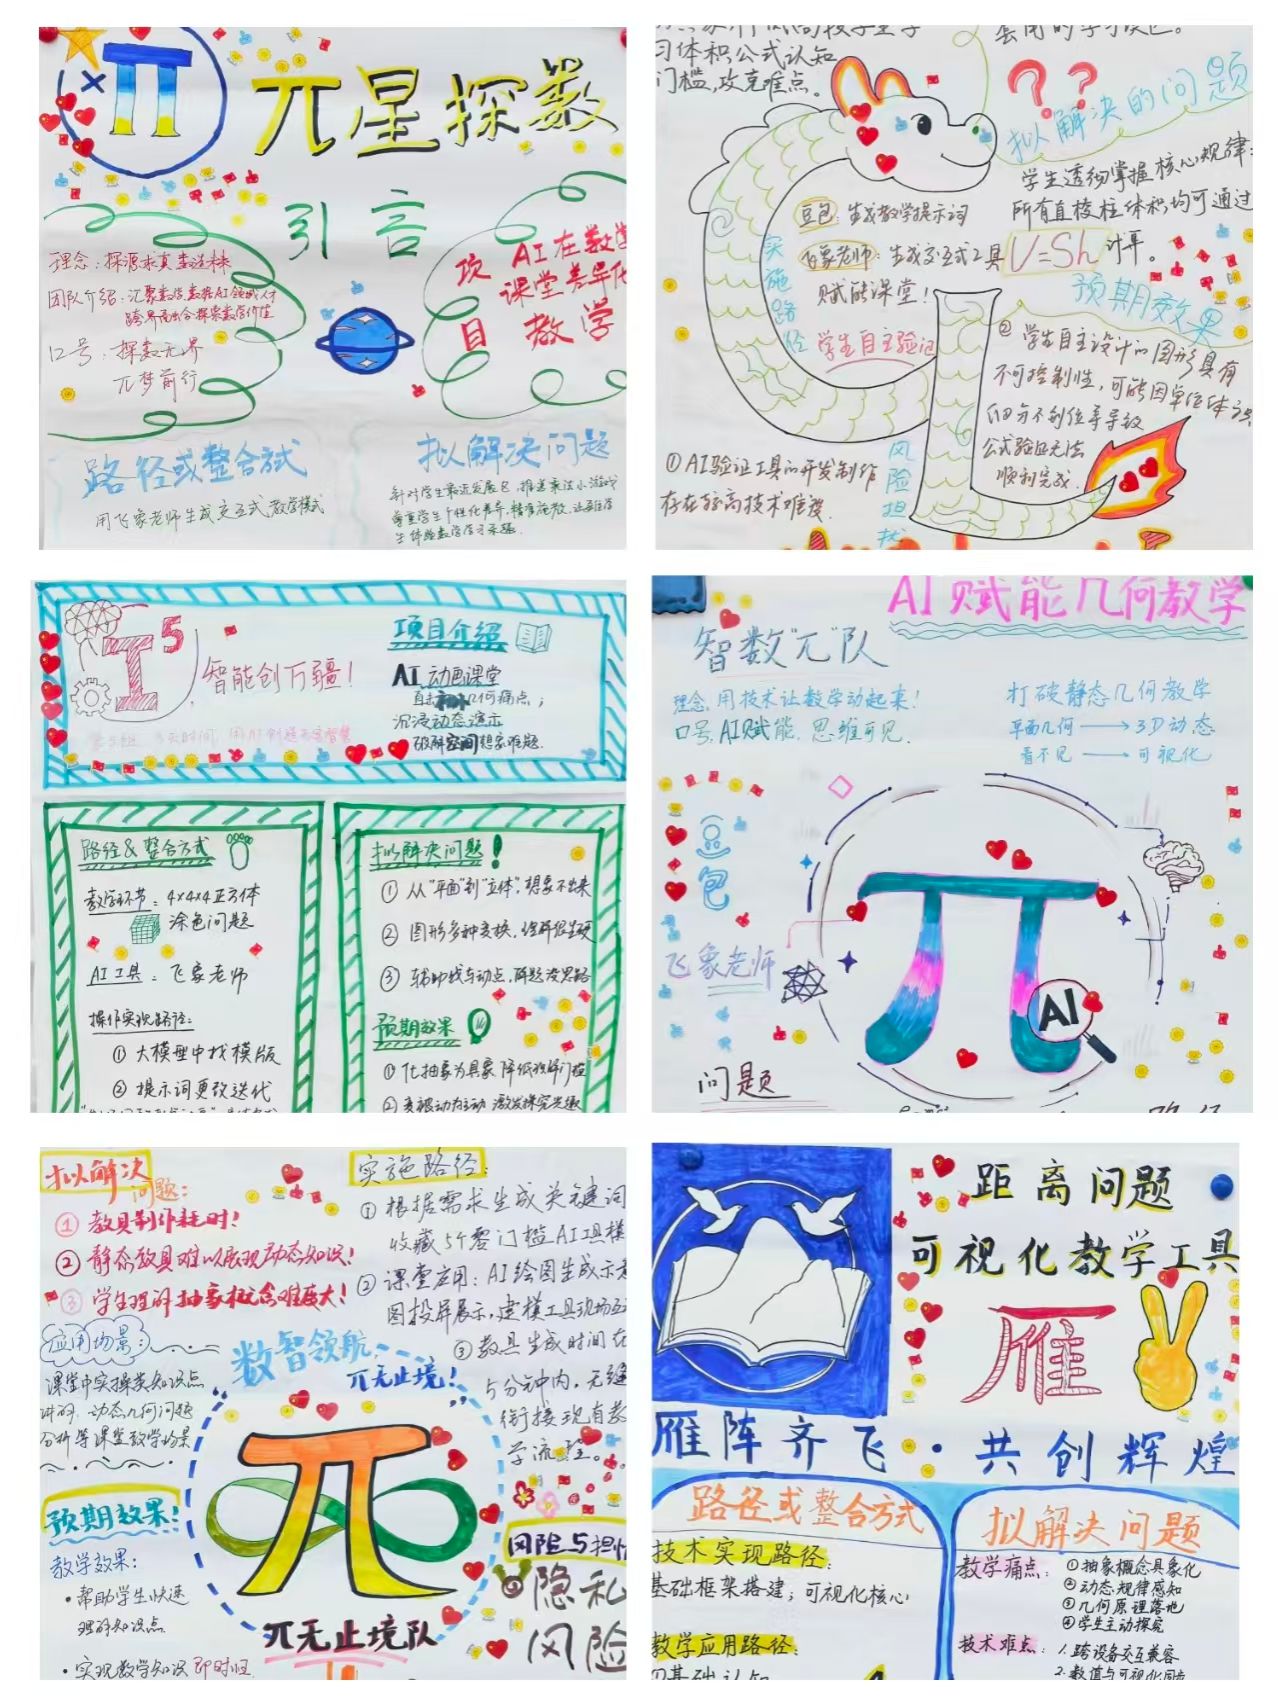 π
π星探数
引言
理念：探源求真 查边未来
团队介绍：汇聚数学、数据AI领域人才
跨界融合探索数学价值
口号：探数无界
π梦前行
项目
AI在数学
课堂差异化
教学
路径或整合式
用飞象老师生成交互式教学模式
拟解决问题
针对学生最近发展区，推送乘法小游戏
尊重学生个性化差异，精准施教，让每位学
生体验数学学习乐趣.
习体积公式认知
门槛，攻克难点。
套用的学习误区。
拟解决的问题
??
学生透彻掌握核心规律：
所有直棱柱体积均可通过
V=Sh 计算。
实施路径
豆包：生成教学提示词
飞象老师：生成交互式工具
赋能课堂！
学生自主验证
预期效果
②学生自主设计的图形具有
不可控制性，可能因单位体
切分不到位等导致
公式验证无法
顺利完成.
①AI验证工具的开发制作
存在较高技术难度.
风险担忧
I5
智能创万疆！
项目介绍
AI动画课堂
直击 几何痛点；
沉浸动态演示
破解空间想象难题.
路径&整合方式
教学环节：4×4×4正方体
涂色问题
AI工具：飞象老师
操作实现路径：
①大模型中找模版
②提示词更改迭代
拟解决问题！
①从“平面”到“立体”，想象不出来
②图形多种变换，理解很生硬
③辅助线与动点，解题没思路
预期效果
①化抽象为具象 降低理解门槛
②变被动为主动 激发探究兴趣
AI赋能几何教学
智数“π”队
理念：用技术让数学动起来！
口号：AI赋能，思维可见.
打破静态几何教学
平面几何→3D动态
看不见→可视化
豆包
飞象老师
π
AI
问题
拟解决
问题：
①教具制作耗时！
②静态教具难以展现动态知识！
③学生理解抽象概念难度大！
应用场景：
课堂中实操类知识点
讲解、动态几何问题
分析等课堂教学场景
预期效果！
教学效果：
·帮助学生快速
理解知识点
·实现数学知识即时性
实施路径：
①根据需求生成关键词
收藏5个零门槛AI工具模
②课堂应用：AI绘图生成示意
图投屏展示，建模工具现场互
③教具生成时间在
5分钟内，无缝
衔接现有教
学流程。
数智领航
π无止境！
π
π无止境队
风险与担忧
隐私
风险
距离问题
可视化教学工具
雁
雁阵齐飞·共创辉煌
路径或整合方式
技术实现路径：
基础框架搭建；可视化核心
教学应用路径：
拟解决问题
教学痛点：①抽象概念具象化
②动态规律感知
③几何原理落地
④学生主动探究
技术难点：1.跨设备交互兼容
2.数值与可视化同步